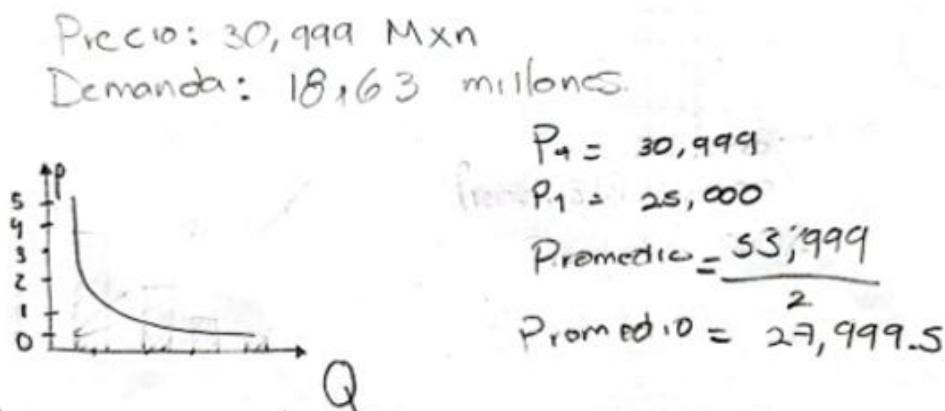 Precio: 30,999 Mxn
Demanda: 18,63 millones.
P
5
4
3
2
1
0
Q
P₁ = 25,000
Promedio = 53,999
2
Promedio = 27,999.5